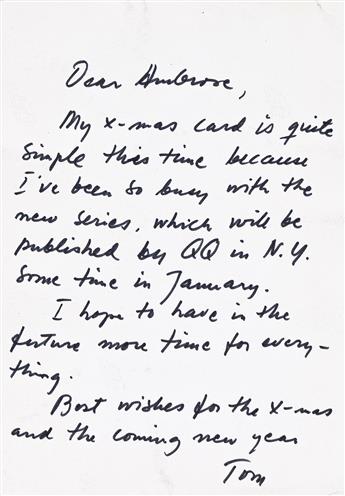 Dear Ambrose,
My x-mas card is quite
simple this time because
I've been so busy with the
new series, which will be
published by QQ in N.Y.
some time in January.
I hope to have in the
future more time for every-
thing.
Best wishes for the x-mas
and the coming new year
Tom